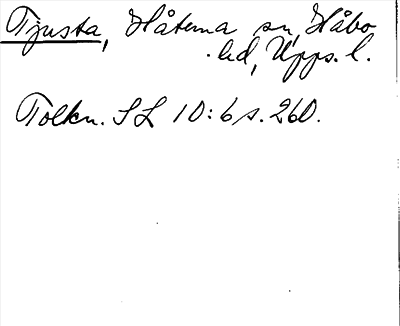 Tjusta, Håtuna sn, Håbo
hd, Upps. l.
Tolkn. SL 10:6 s. 260.